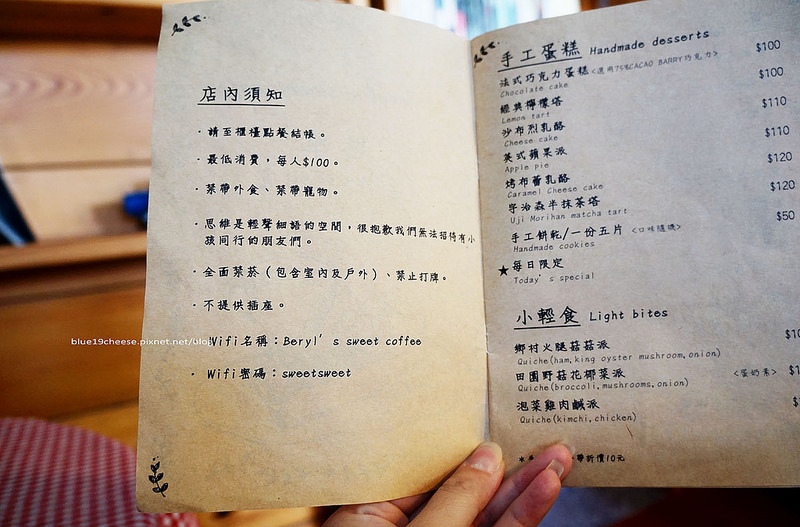 店內須知
·請至櫃檯點餐結帳。
·最低消費,每人$100。
·禁帶外食、禁帶寵物。
·思維是輕聲細語的空間,很抱歉我們無法招待有小
孩同行的朋友們。
·全面禁菸(包含室內及戶外)、禁止打牌。
·不提供插座。
Wifi名稱:Beryl's sweet coffee
· Wifi密碼:sweetsweet
blue19cheese.pixnet.net/blog
手工蛋糕 Handmade desserts
法式巧克力蛋糕<選用75%CACAO BARRY巧克力> $100
Chocolate cake
經典檸檬塔 $100
Lemon tart
沙布烈乳酪 $110
Cheese cake
英式蘋果派 $110
Apple pie
烤布蕾乳酪 $120
Caramel Cheese cake
宇治森半抹茶塔 $120
Uji Morihan matcha tart
手工餅乾/一份五片 <口味隨機> $50
Handmade cookies
★每日限定
Today's special
小輕食 Light bites
鄉村火腿菇菇派
Quiche(ham,king oyster mushroom,onion)
田園野菇花椰菜派 <蛋奶素>
Quiche(broccoli,mushrooms,onion)
泡菜雞肉鹹派
Quiche(kimchi,chicken)
帶折價10元